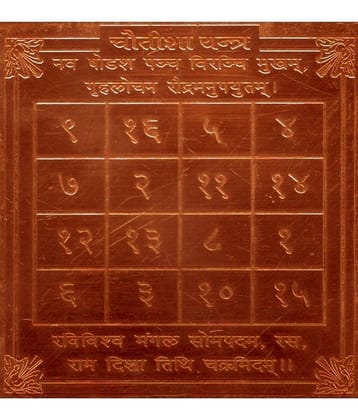 चौतीशा यन्त्र
नव षोडश पञ्च विरञ्चि मुखम्,
गृहलोचन रौद्रममुपयुतम्।
९ १६ ५ ४
७ २ ११ १४
१२ १३ ८ १
६ ३ १० १५
रविविश्व मंगल सोमपदम, रस,
राम दिशा तिथि चक्रमिदम्।।